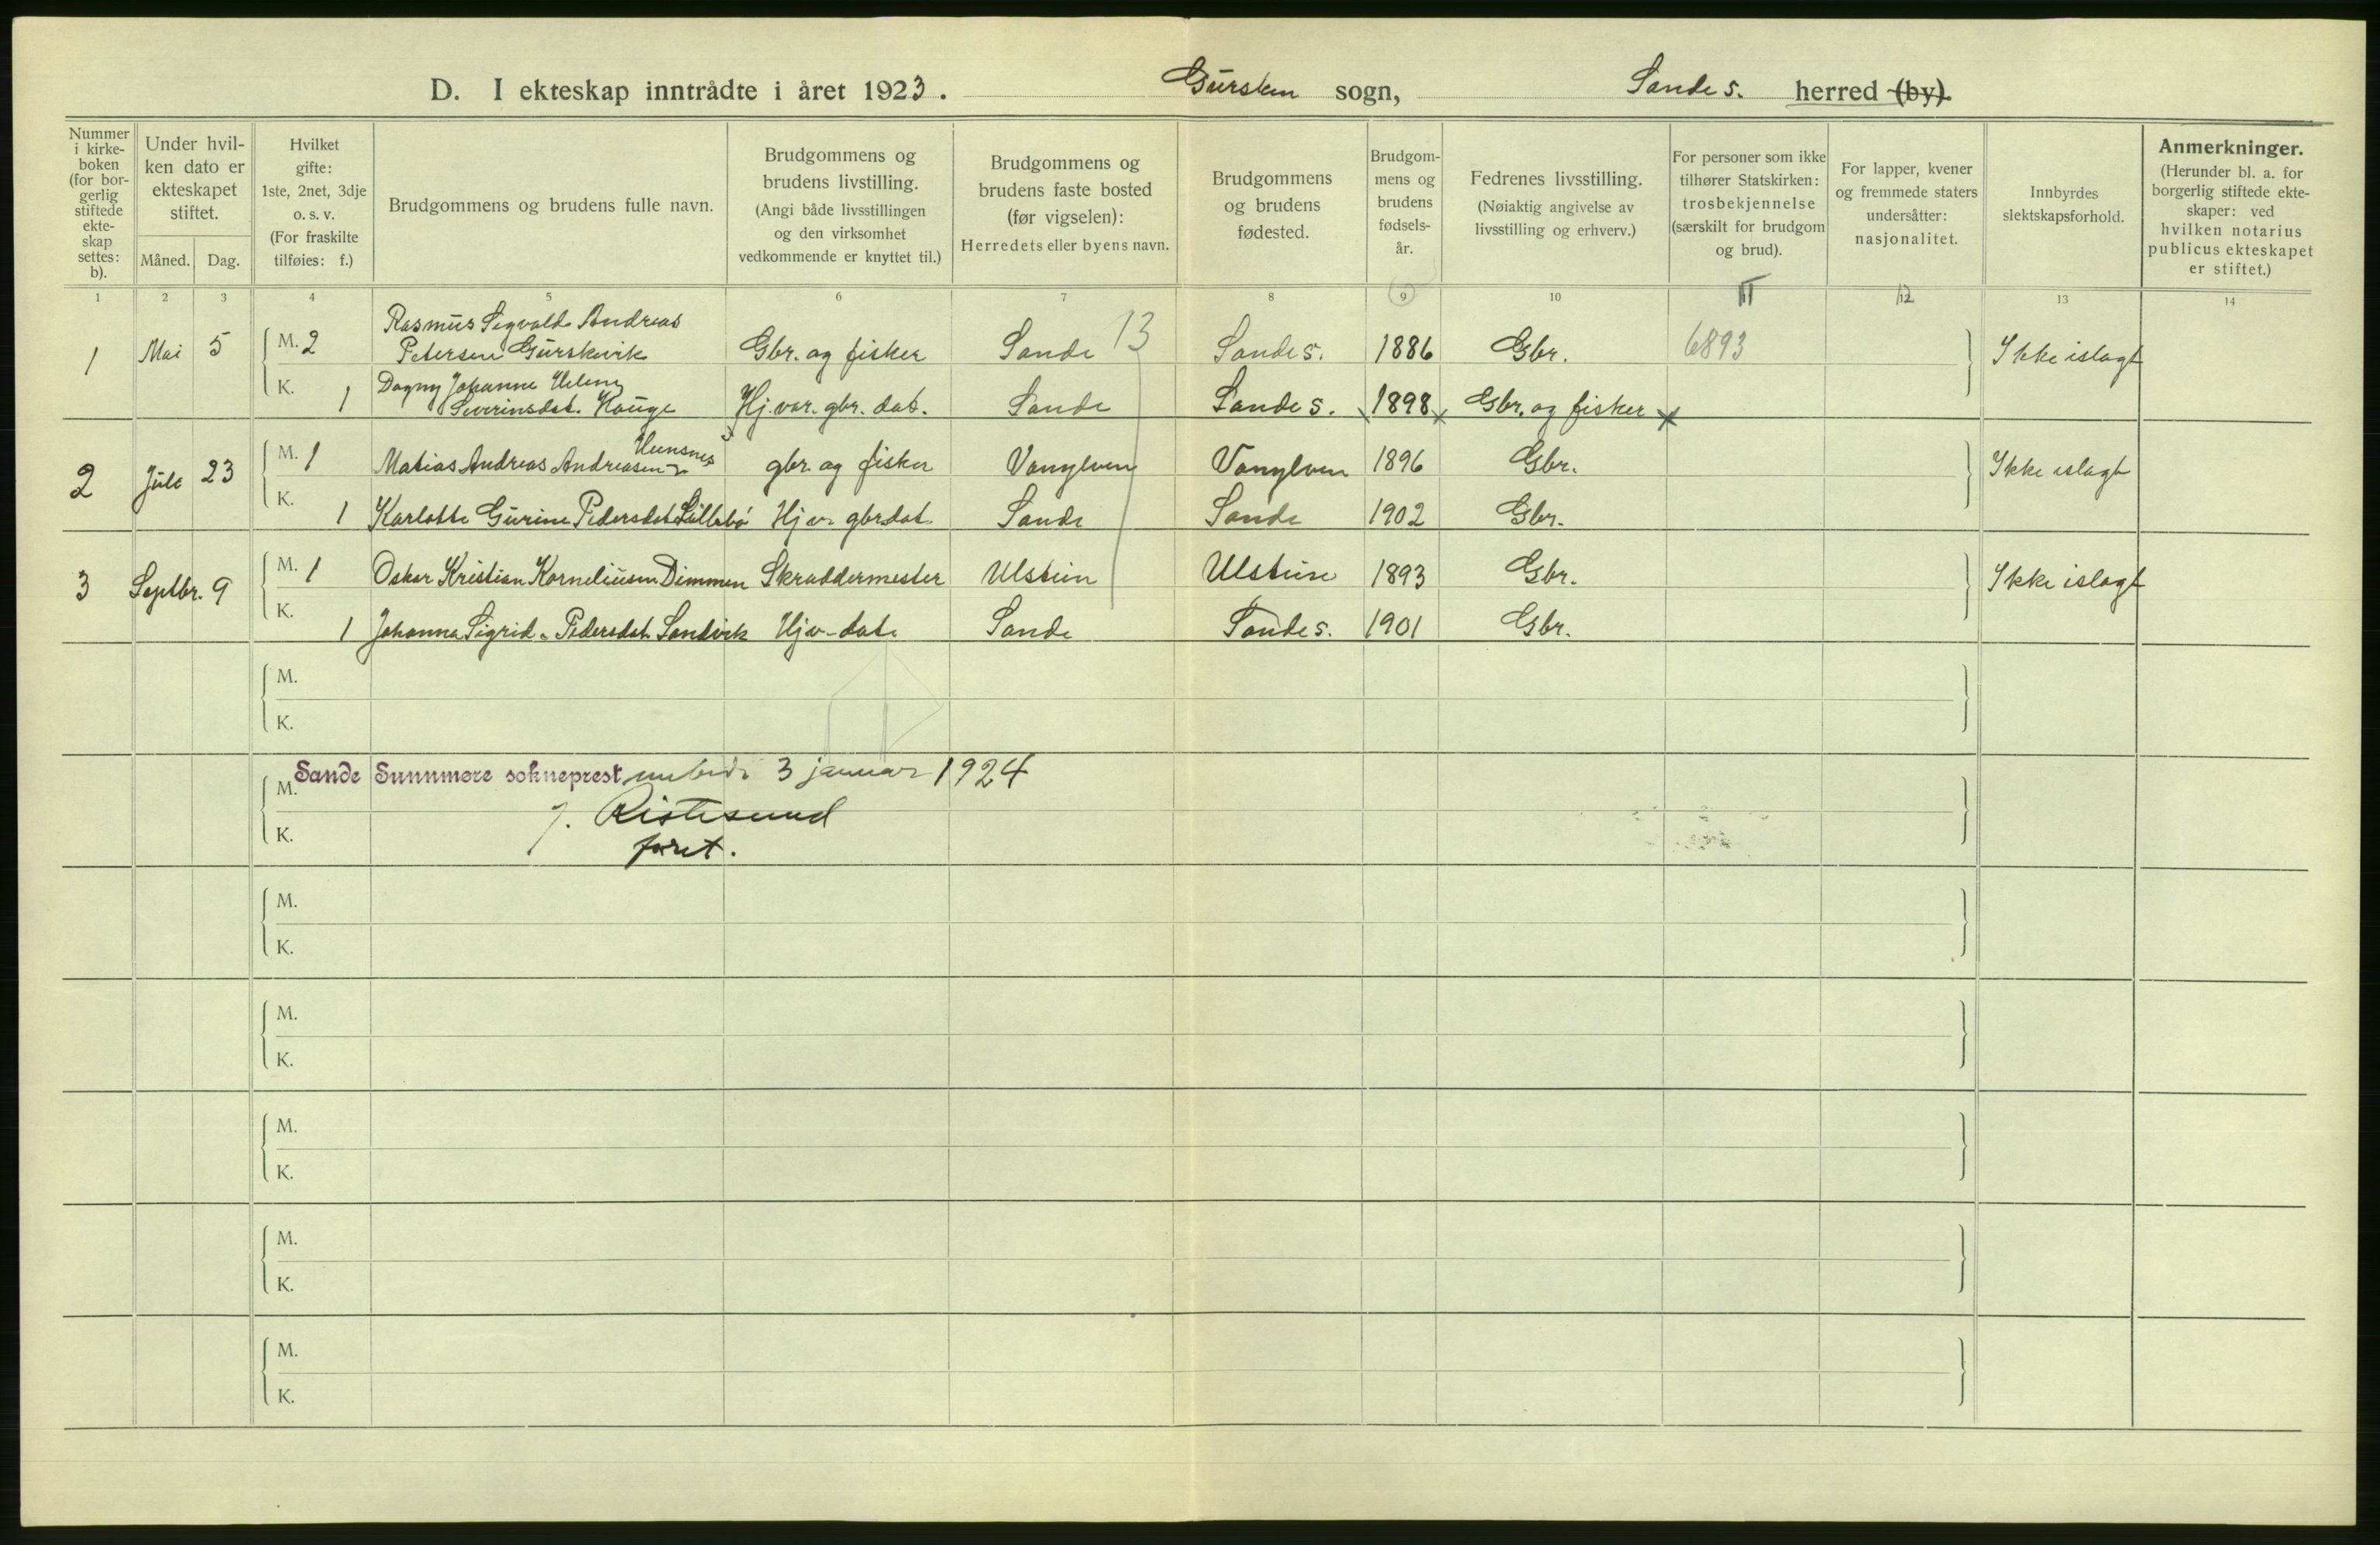 D. I ekteskap inntrådte i året 1923. Gursken sogn, Sande s. herred (by).
Nummer i kirke-boken (for bor-gerlig stiftede ekte-skap settes: b).
Under hvil-ken dato er ekteskapet stiftet.
Måned. Dag.
Hvilket gifte: 1ste, 2net, 3dje o. s. v. (For fraskilte tilføies: f.)
Brudgommens og brudens fulle navn.
Brudgommens og brudens livstilling. (Angi både livsstillingen og den virksomhet vedkommende er knyttet til.)
Brudgommens og brudens faste bosted (før vigselen): Herredets eller byens navn.
Brudgommens og brudens fødested.
Brudgom-mens og brudens fødsels-år.
Fedrenes livsstilling. (Nøiaktig angivelse av livsstilling og erhverv.)
For personer som ikke tilhører Statskirken: trosbekjennelse (særskilt for brudgom og brud).
For lapper, kvener og fremmede staters undersåtter: nasjonalitet.
Innbyrdes slektskapsforhold.
Anmerkninger. (Herunder bl. a. for borgerlig stiftede ekte-skaper: ved hvilken notarius publicus ekteskapet er stiftet.)
1 2 3 4 5 6 7 8 9 10 11 12 13 14
Rasmus Sigvald Andreas
1 Mai 5 M. 2 Petersen Gurskevik Gbr. og fisker Sande 13 Sande s. 1886 Gbr. 6893 Ikke islagt
Dagny Johanne Helene
K. 1 Severinsdat. Hauge Hj. var. gbr. dat. Sande Sande s. 1898 Gbr. og fisker
2 Juli 23 M. 1 Matias Andreas Andreasen Hunsnes gbr. og fisker Vanylven Vanylven 1896 Gbr. Ikke islagt
K. 1 Karlotte Gurine Pedersdat. Lillebø Hj v. gbr dat. Sande Sande 1902 Gbr.
3 Septbr. 9 M. 1 Oskar Kristian Korneliusen Dimmen Skraddermester Ulstein Ulstein 1893 Gbr. Ikke islagt
K. 1 Johanna Sigrid Pedersdat. Sandvik Hj v. dat. Sande Sande s. 1901 Gbr.
M.
K.
Sande Sunnmøre sokneprest 3 januar 1924
M.
J. Ristesund
K.
foret.
M.
K.
M.
K.
M.
K.
M.
K.
M.
K.